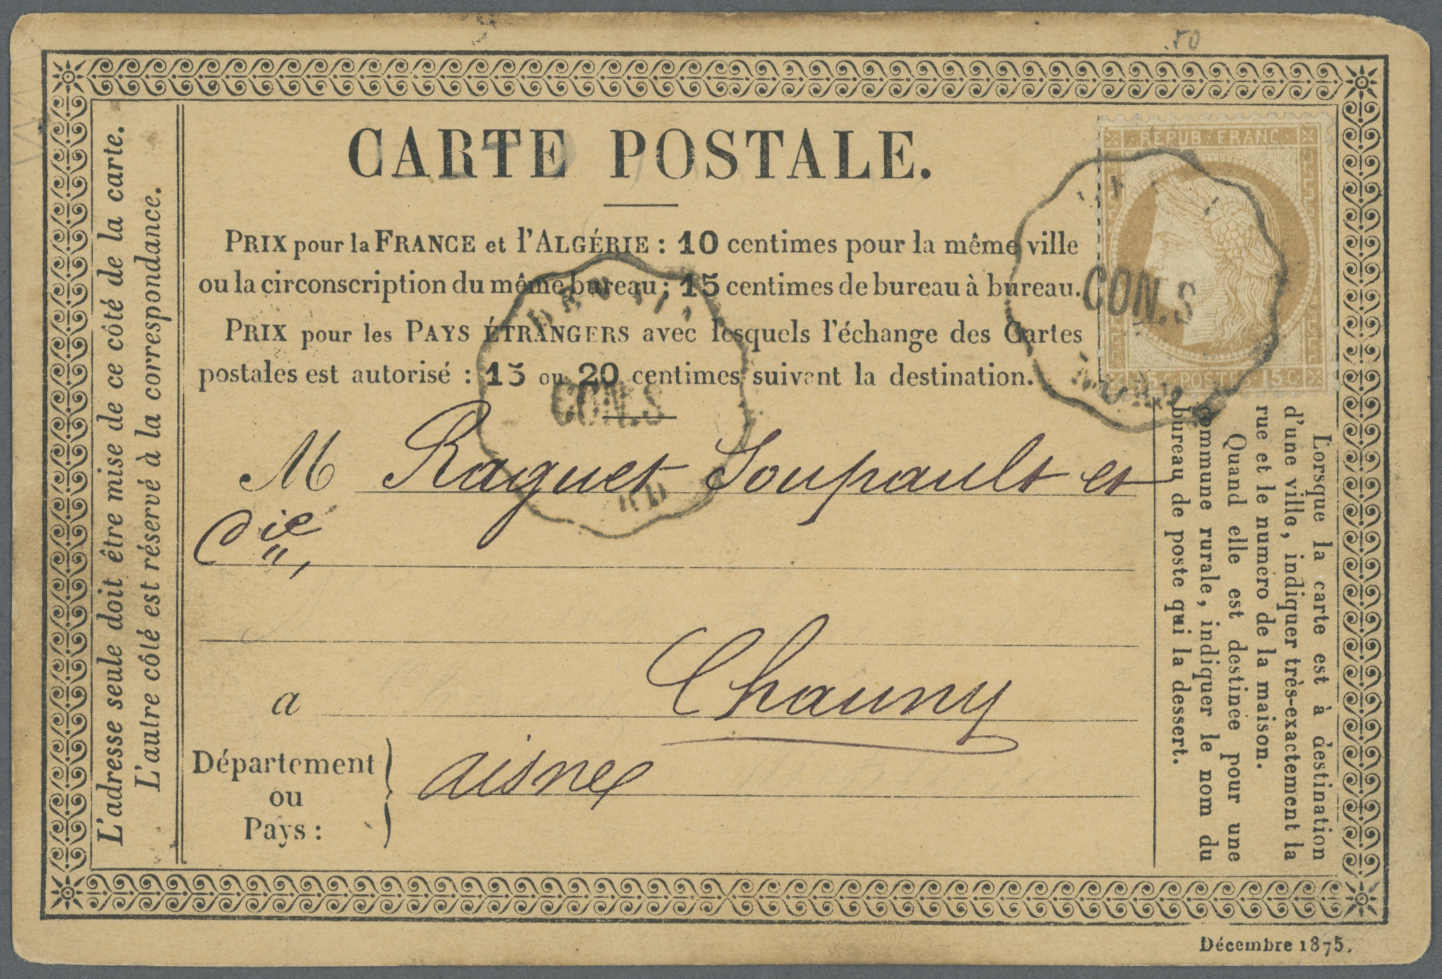 .50
CARTE POSTALE.
REPUB·FRANC·
PRIX pour la FRANCE et l'ALGÉRIE : 10 centimes pour la même ville
ou la circonscription du même bureau; 15 centimes de bureau à bureau.
PRIX pour les PAYS ÉTRANGERS avec lesquels l'échange des Cartes
postales est autorisé : 15 ou 20 centimes suivant la destination.
CON.S
CON.S
POSTES 15 C.
M Raguet Soupault et
Cie,
a Chauny
Département
ou
Pays :
aisne
L'adresse seule doit être mise de ce côté de la carte.
L'autre côté est réservé à la correspondance.
Lorsque la carte est à destination
d'une ville, indiquer très-exactement la
rue et le numéro de la maison.
Quand elle est destinée pour une
commune rurale, indiquer le nom du
bureau de poste qui la dessert.
Décembre 1875.